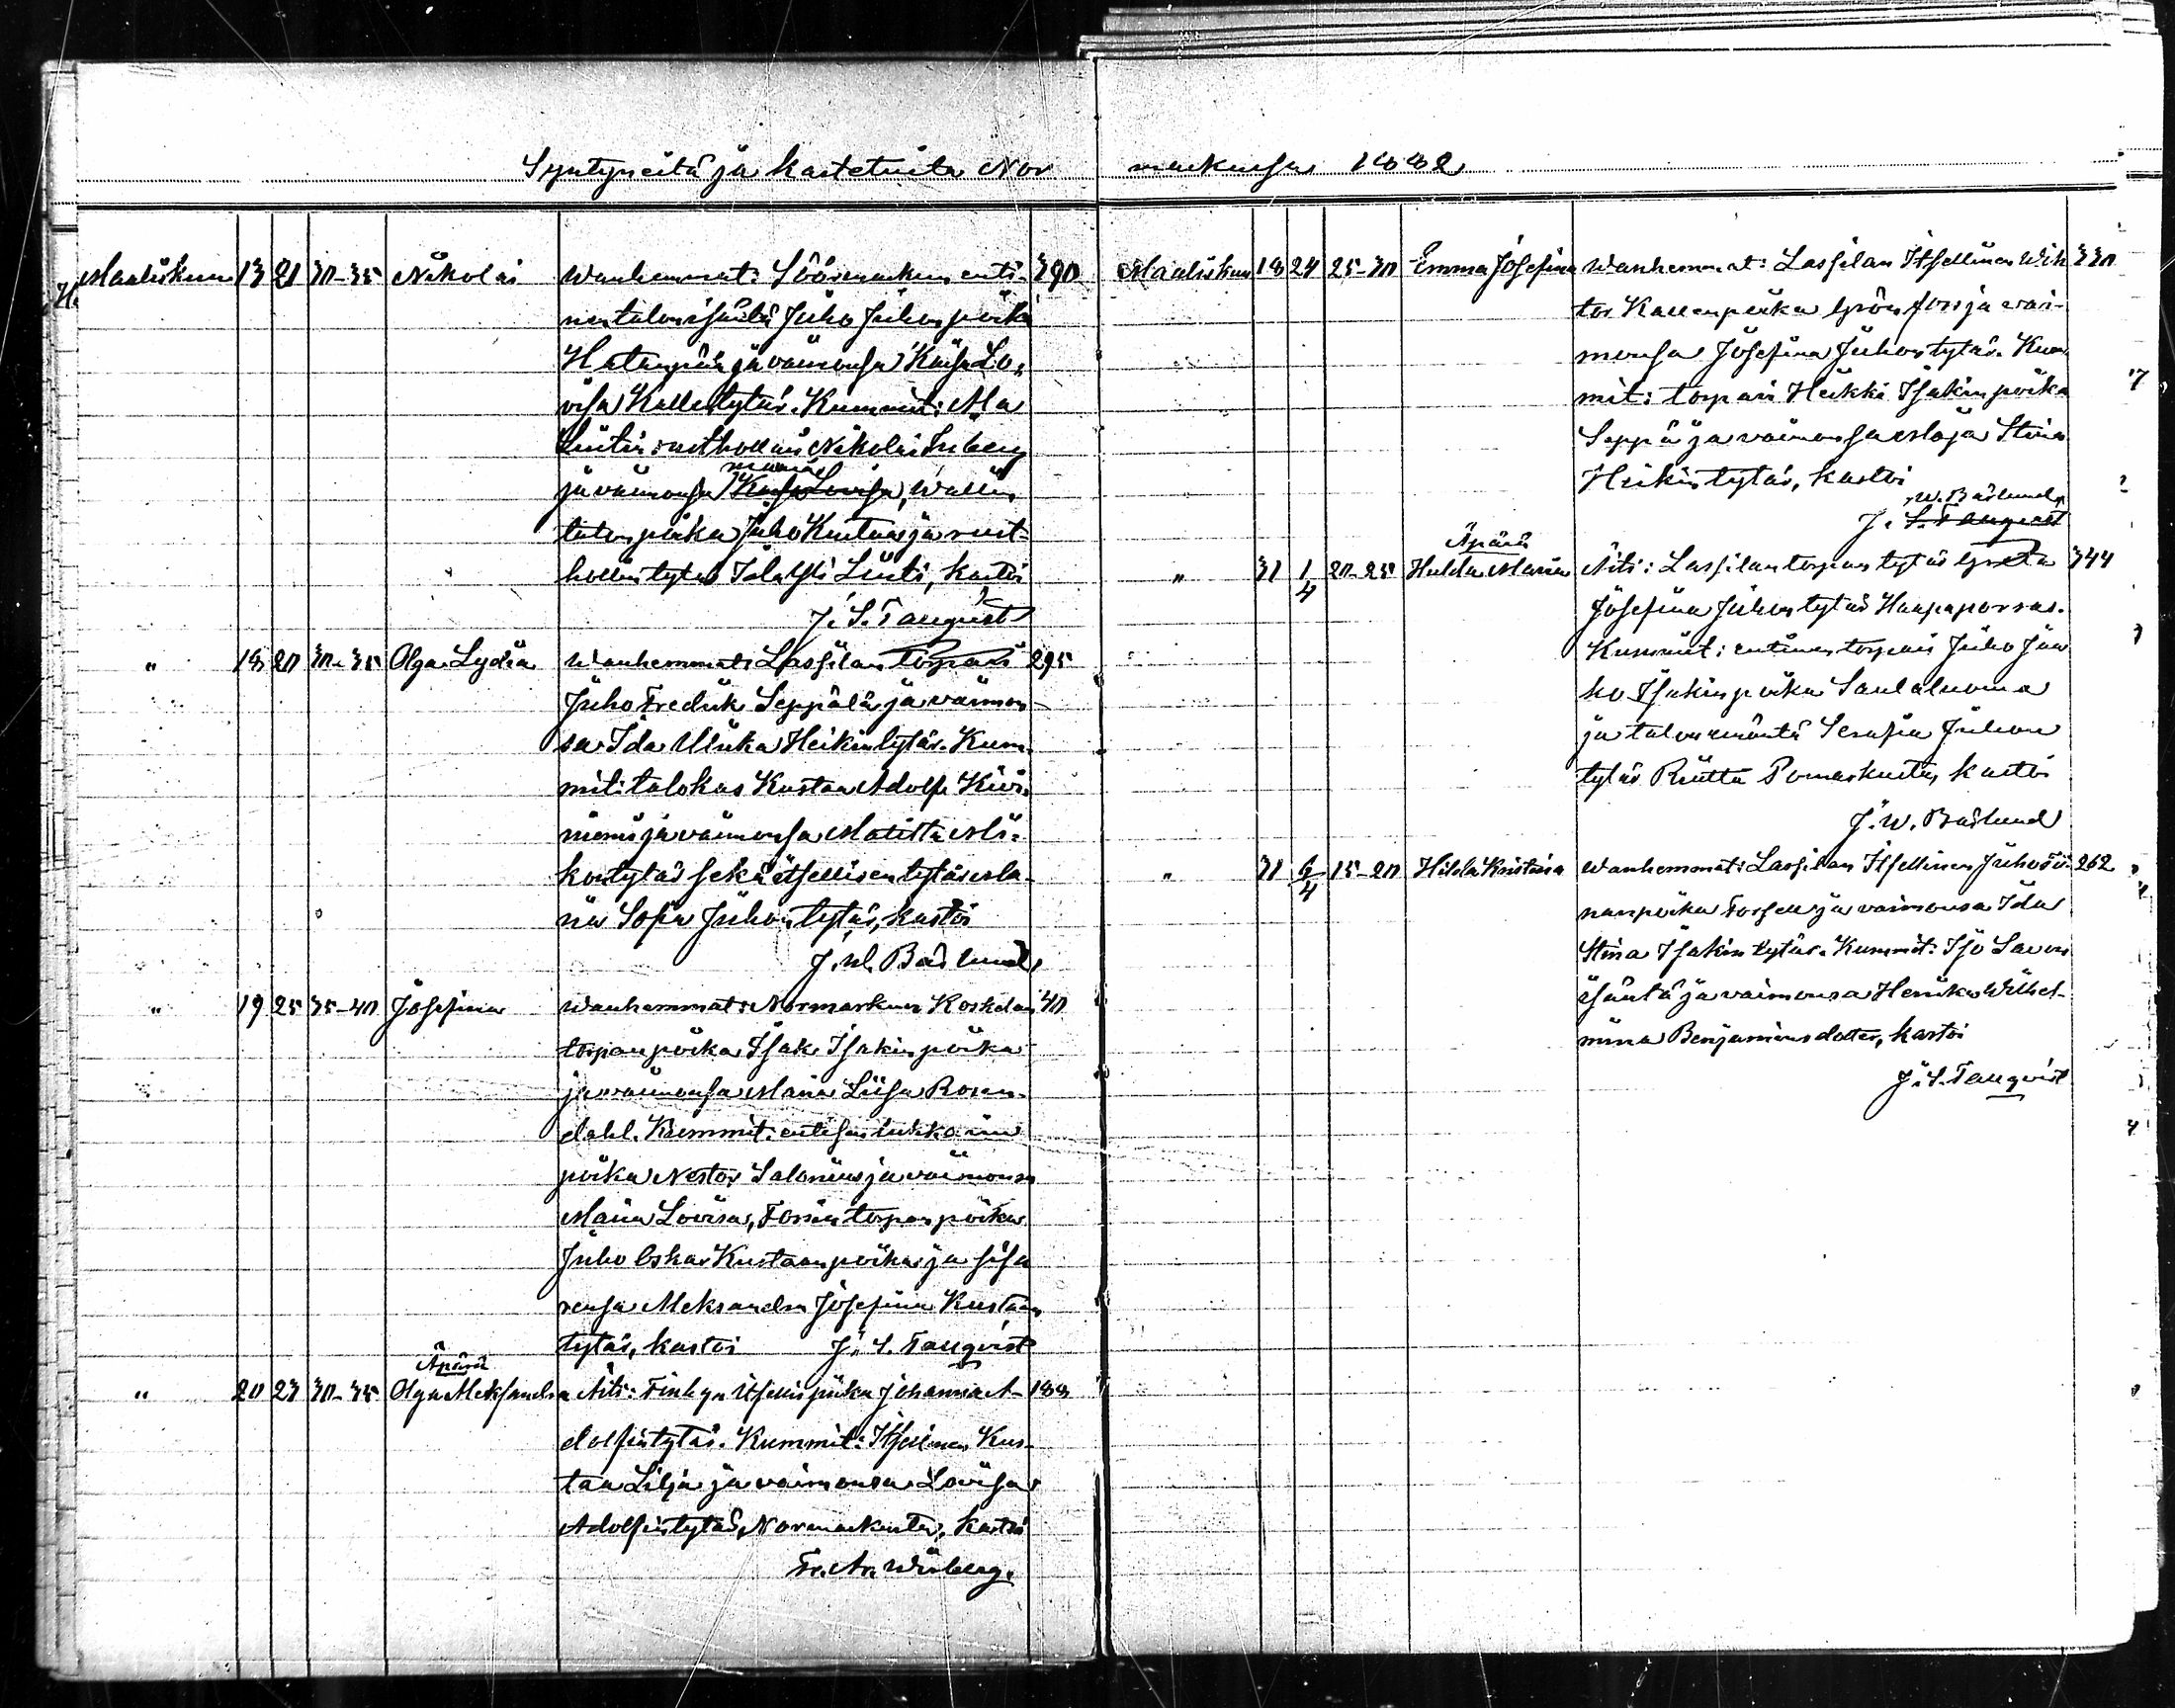 Syntyneitä ja kastetuita Nor
Maaliskuu 13 21 30-35 Nikolai Wanhemmat: Söörmarkun enti- 390
nen talonisäntä Juho Juhonpoika
Hatanpää ja vaimonsa Kaisa Lo-
visa Kallentytär. Kummit: Ma
Liutin rusthollari Nikolai Inberg
Maria
ja vaimonsa Kaisa Lovisa,
talonpoika Juho Kustaa ja rust-
hollin tytär Ida Liuti, kastoi
J. S. Tanqvist
" 18 20 30-35 Olga Lydia Wanhemmat: Lassilan torpari 295
Juho Fredrik Seppälä ja vaimon
sa Ida Ulrika Heikintytär. Kum-
mit: talokas Kustaa Adolf Kivi-
niemi ja vaimonsa Matilta Mi-
kontytär sekä itsellisen tytär Ma-
ria Sofia Juhontytär, kastoi
J. W. Båslund
" 19 25 35-40 Josefina Wanhemmat: Normarkun Koskelan 40
torpanpoika Isak Isakinpoika
ja vaimonsa Maria Liisa Rosen-
dahl. Kummit: entisen lukkarin
poika Nestor Salonius ja vaimonsa
Maria Lovisa, Forsin torpan poika
Juho Oskar Kustaanpoika ja sisa
rensa Aleksandra Josefina Kustaan
tytär, kastoi J. S. Tanqvist
Äpärä
" 20 23 30-35 Olga Aleksandra Äiti: Finbyn itsellispiika Johanna A- 188
dolfintytär. Kummit: Itsellinen Kus-
taa Lilja ja vaimonsa Lovisa
Adolfintytär, Normarkusta, kastoi
Fr. A. Winberg.
markussa 1882
Maaliskuu 18 24 25-30 Emma Josefina Wanhemmat: Lassilan Itsellinen Wih 330
tor Kallenpoika Grönfors ja vai-
monsa Josefina Juhontytär. Kum-
mit: torpari Heikki Isakinpoika
Seppä ja vaimonsa Maja Stina
Heikintytär, kastoi
W. Båslund
J. S. Tanqvist
Äpärä
" 31 1/4 20-25 Hulda Maria Äiti: Lassilan torpan tytär Greta 344
Josefina Juhontytär Haapaporras.
Kummit: entinen torpari Juho Jaa
ko Isakinpoika Santaluoma
ja talon emäntä Serafia Juhon
tytär Riutta Pomarkusta, kastoi
J. W. Båslund
" 31 6/4 15-20 Hilda Kristina Wanhemmat: Lassilan Itsellinen Juho Jo- 262
hanpoika Forsell ja vaimonsa Ida
Stina Isakintytär. Kummit: Iso Savon
isäntä ja vaimonsa Henrika Wilhel-
mina Benjaminsdoter, kastoi
J. S. Tanqvist